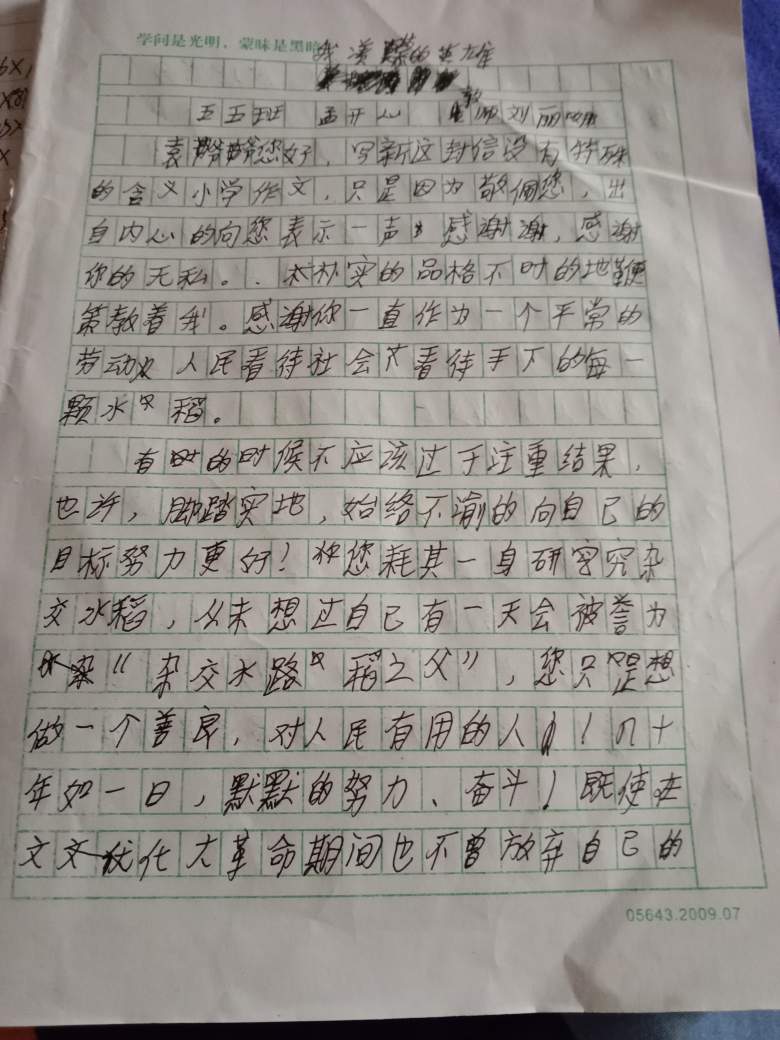 学问是光明，蒙昧是黑暗
我 的英雄
五五班 孟开心 师刘丽
袁爷爷您好，写 这封信没有特殊
的含义小学作文，只是因为敬佩您，出
自内心的向您表示一声 感谢谢，感谢
你的无私。. 朴实的品格不时的地鞭
策教着我。感谢你一直作为一个平常的
劳动 人民看待社会 看待手下的每一
颗水 稻。
有时的时候不应该过于注重结果，
也许，脚踏实地，始终不渝的向自己的
目标努力更好！ 您耗其一身研究究杂
交水稻，从未想过自己有一天会被誉为
“杂交水路 稻之父”，您只是想
做一个善良，对人民有用的人！几十
年如一日，默默的努力、奋斗！既使在
文 化大革命期间也不曾放弃自己的
05643.2009.07